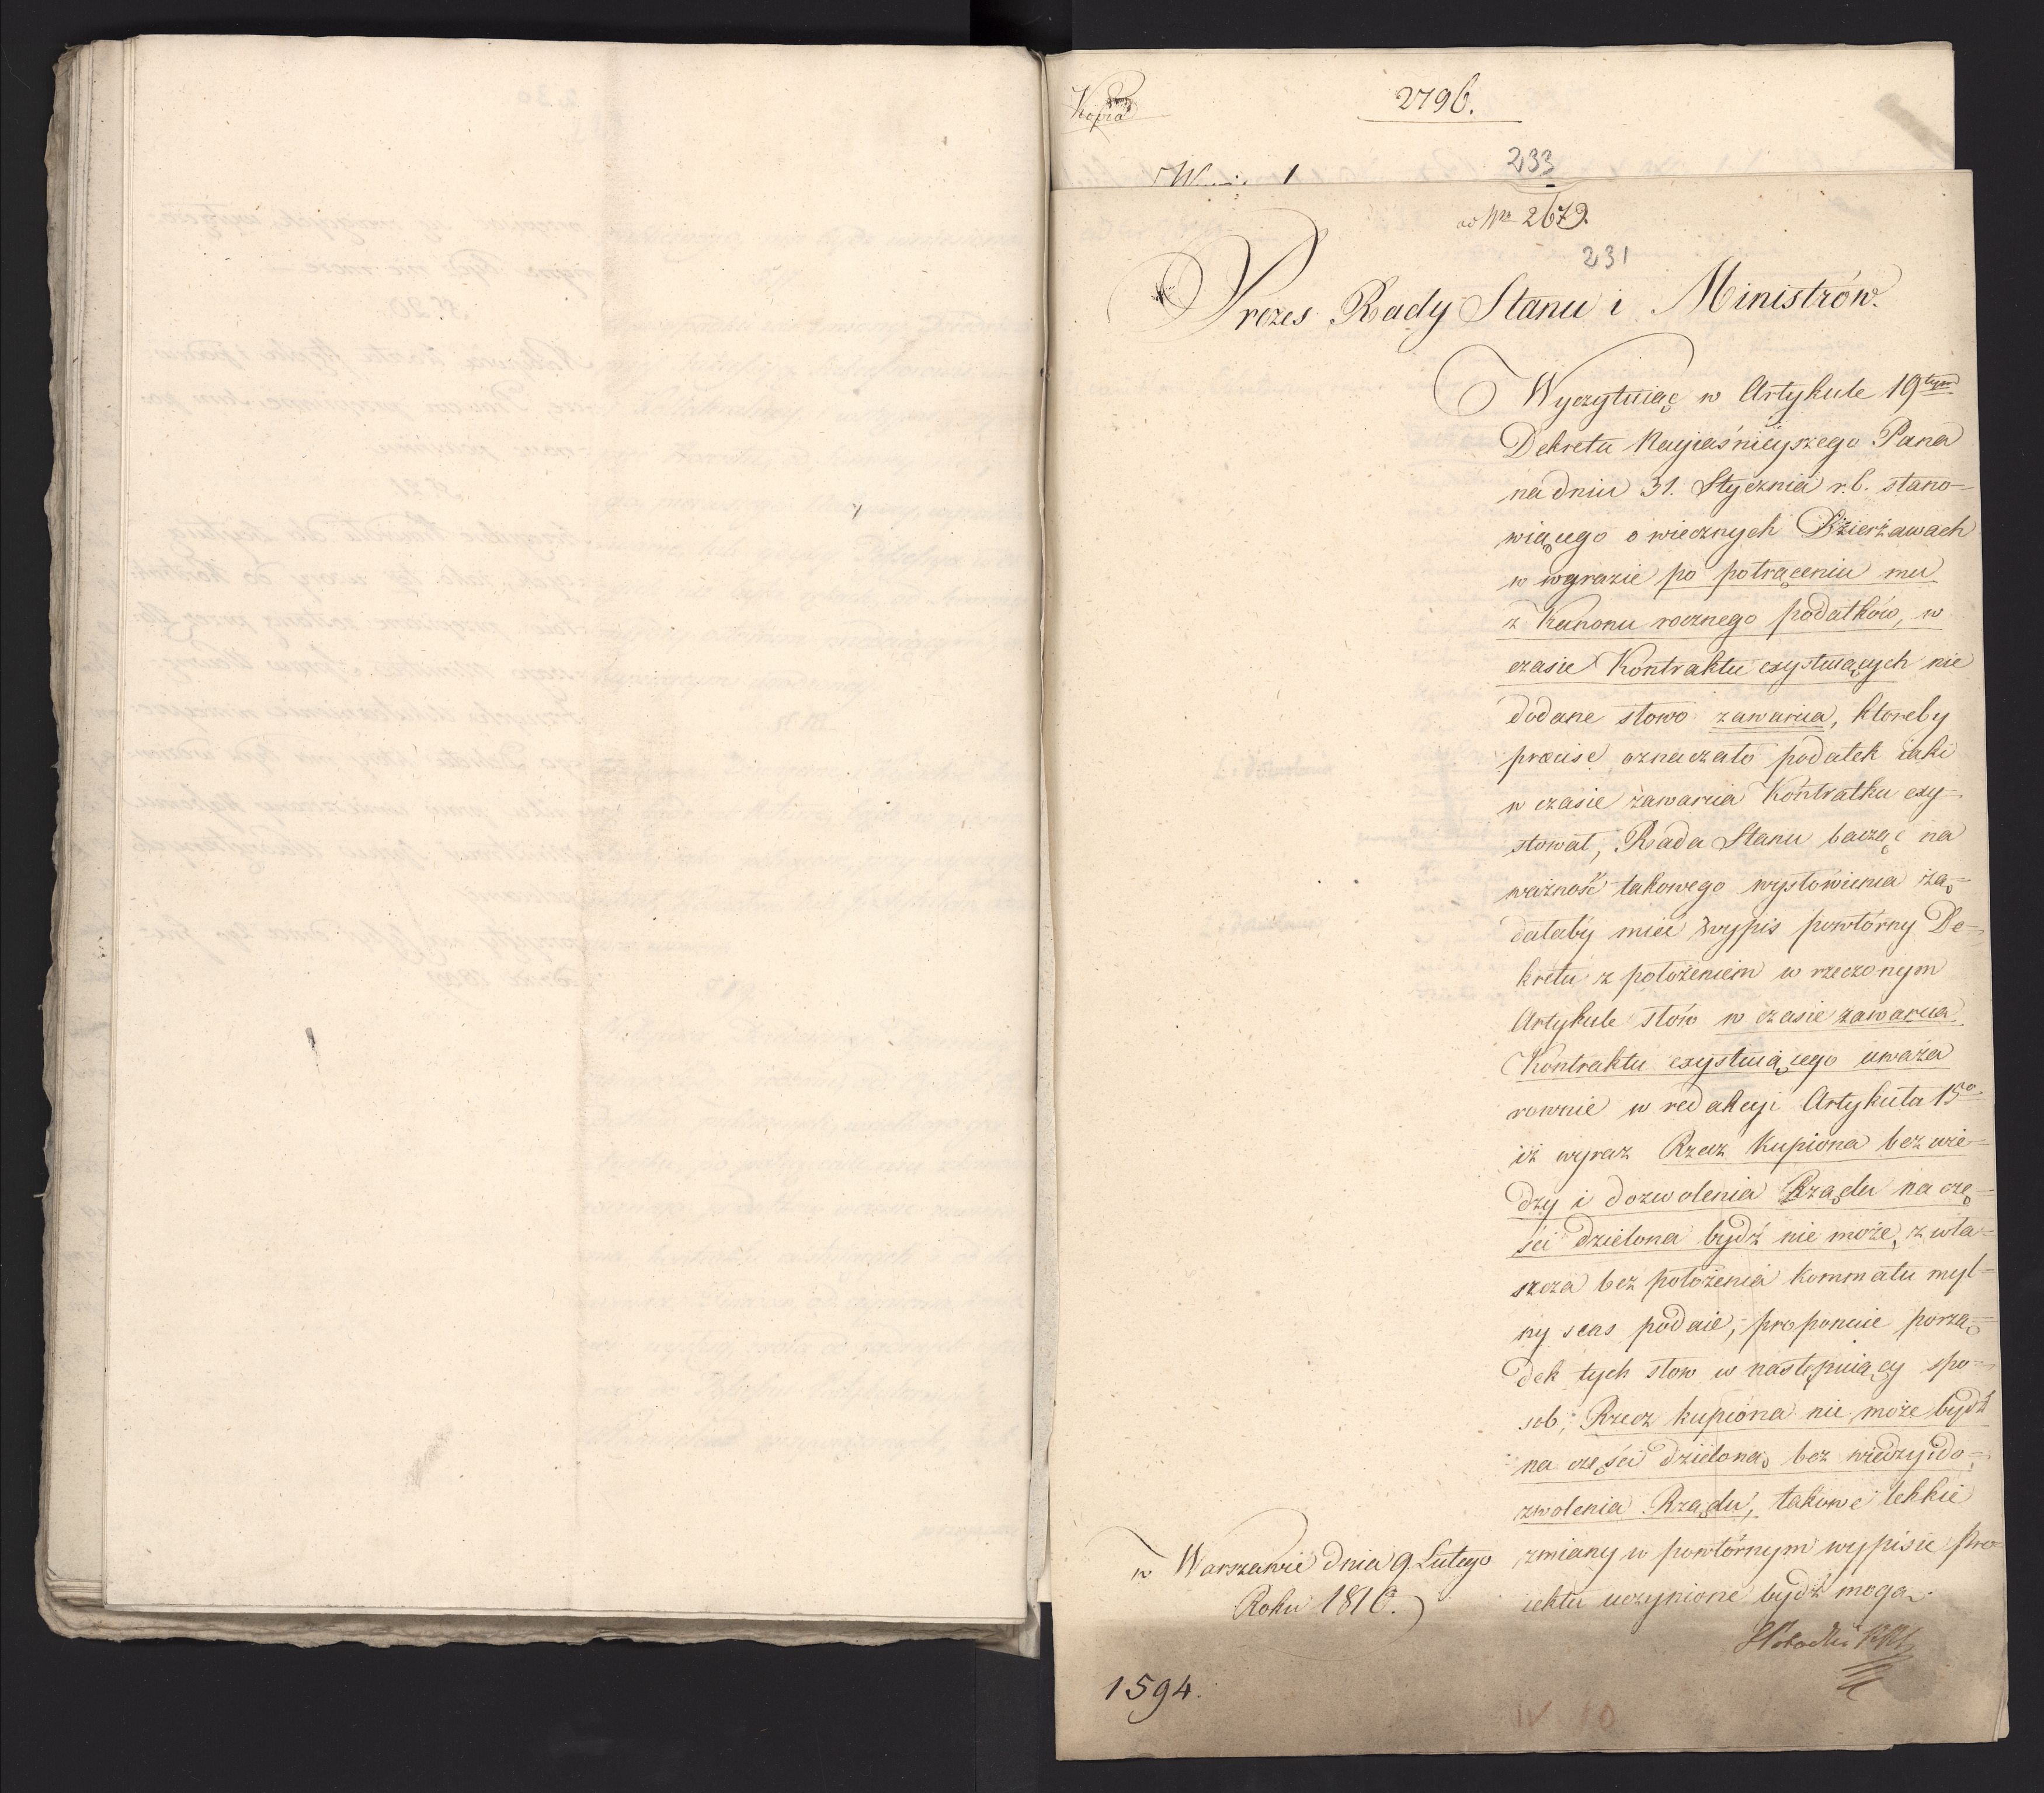 Kopia
2796.
233
ad Nrm 2679.
231
Prezes Rady Stanu i Ministrów.
Wyczytuiąc w Artykule 19tym
Dekretu Nayiaśnieyszego Pana
na dniu 31. Stycznia r.b. stano=
wiącego o wiecznych Dzierżawach
w wyrazie po potrąceniu mu
z Kanonu rocznego podatków, w
czasie Kontraktu exystuiących nie
dodane słowo zawarcia, ktoreby
præcise oznaczało podatek iaki
w czasie zawarcia Kontraktu exy=
stował, Rada Stanu bacząc na
ważność takowego wysłowienia żą=
dałaby mieć wypis powtórny De=
kretu z położeniem w rzeczonym
Artykule słów w czasie zawarcia
Kontraktu exystuiącego uważa
rownie w redakcyi Artykułu 15o
iż wyraz Rzecz kupiona bez wie=
dzy i dozwolenia Rządu na czę=
ści dzielona bydź nie może, zwła=
szcza bez położenia kommatu myl=
ny sens podaie, proponuie porzą=
dek tych słow w następuiący spo=
sob, Rzecz kupiona nie może bydź
na części dzielona, bez wiedzy i do=
zwolenia Rządu, takowe lekkie
zmiany w powtórnym wypisie Pro=
iektu uczynione bydź mogą.
w Warszawie dnia 9. Lutego
Roku 1810.
1594.
IV 10